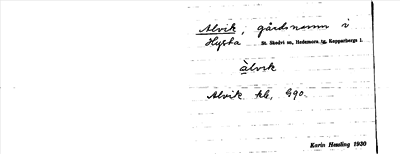 Alvik, gårdsnamn i
Hytta St. Skedvi sn, Hedemora tg. Kopparbergs l.
àlvɩk
Alvik kb, 690.
Karin Hessling 1930